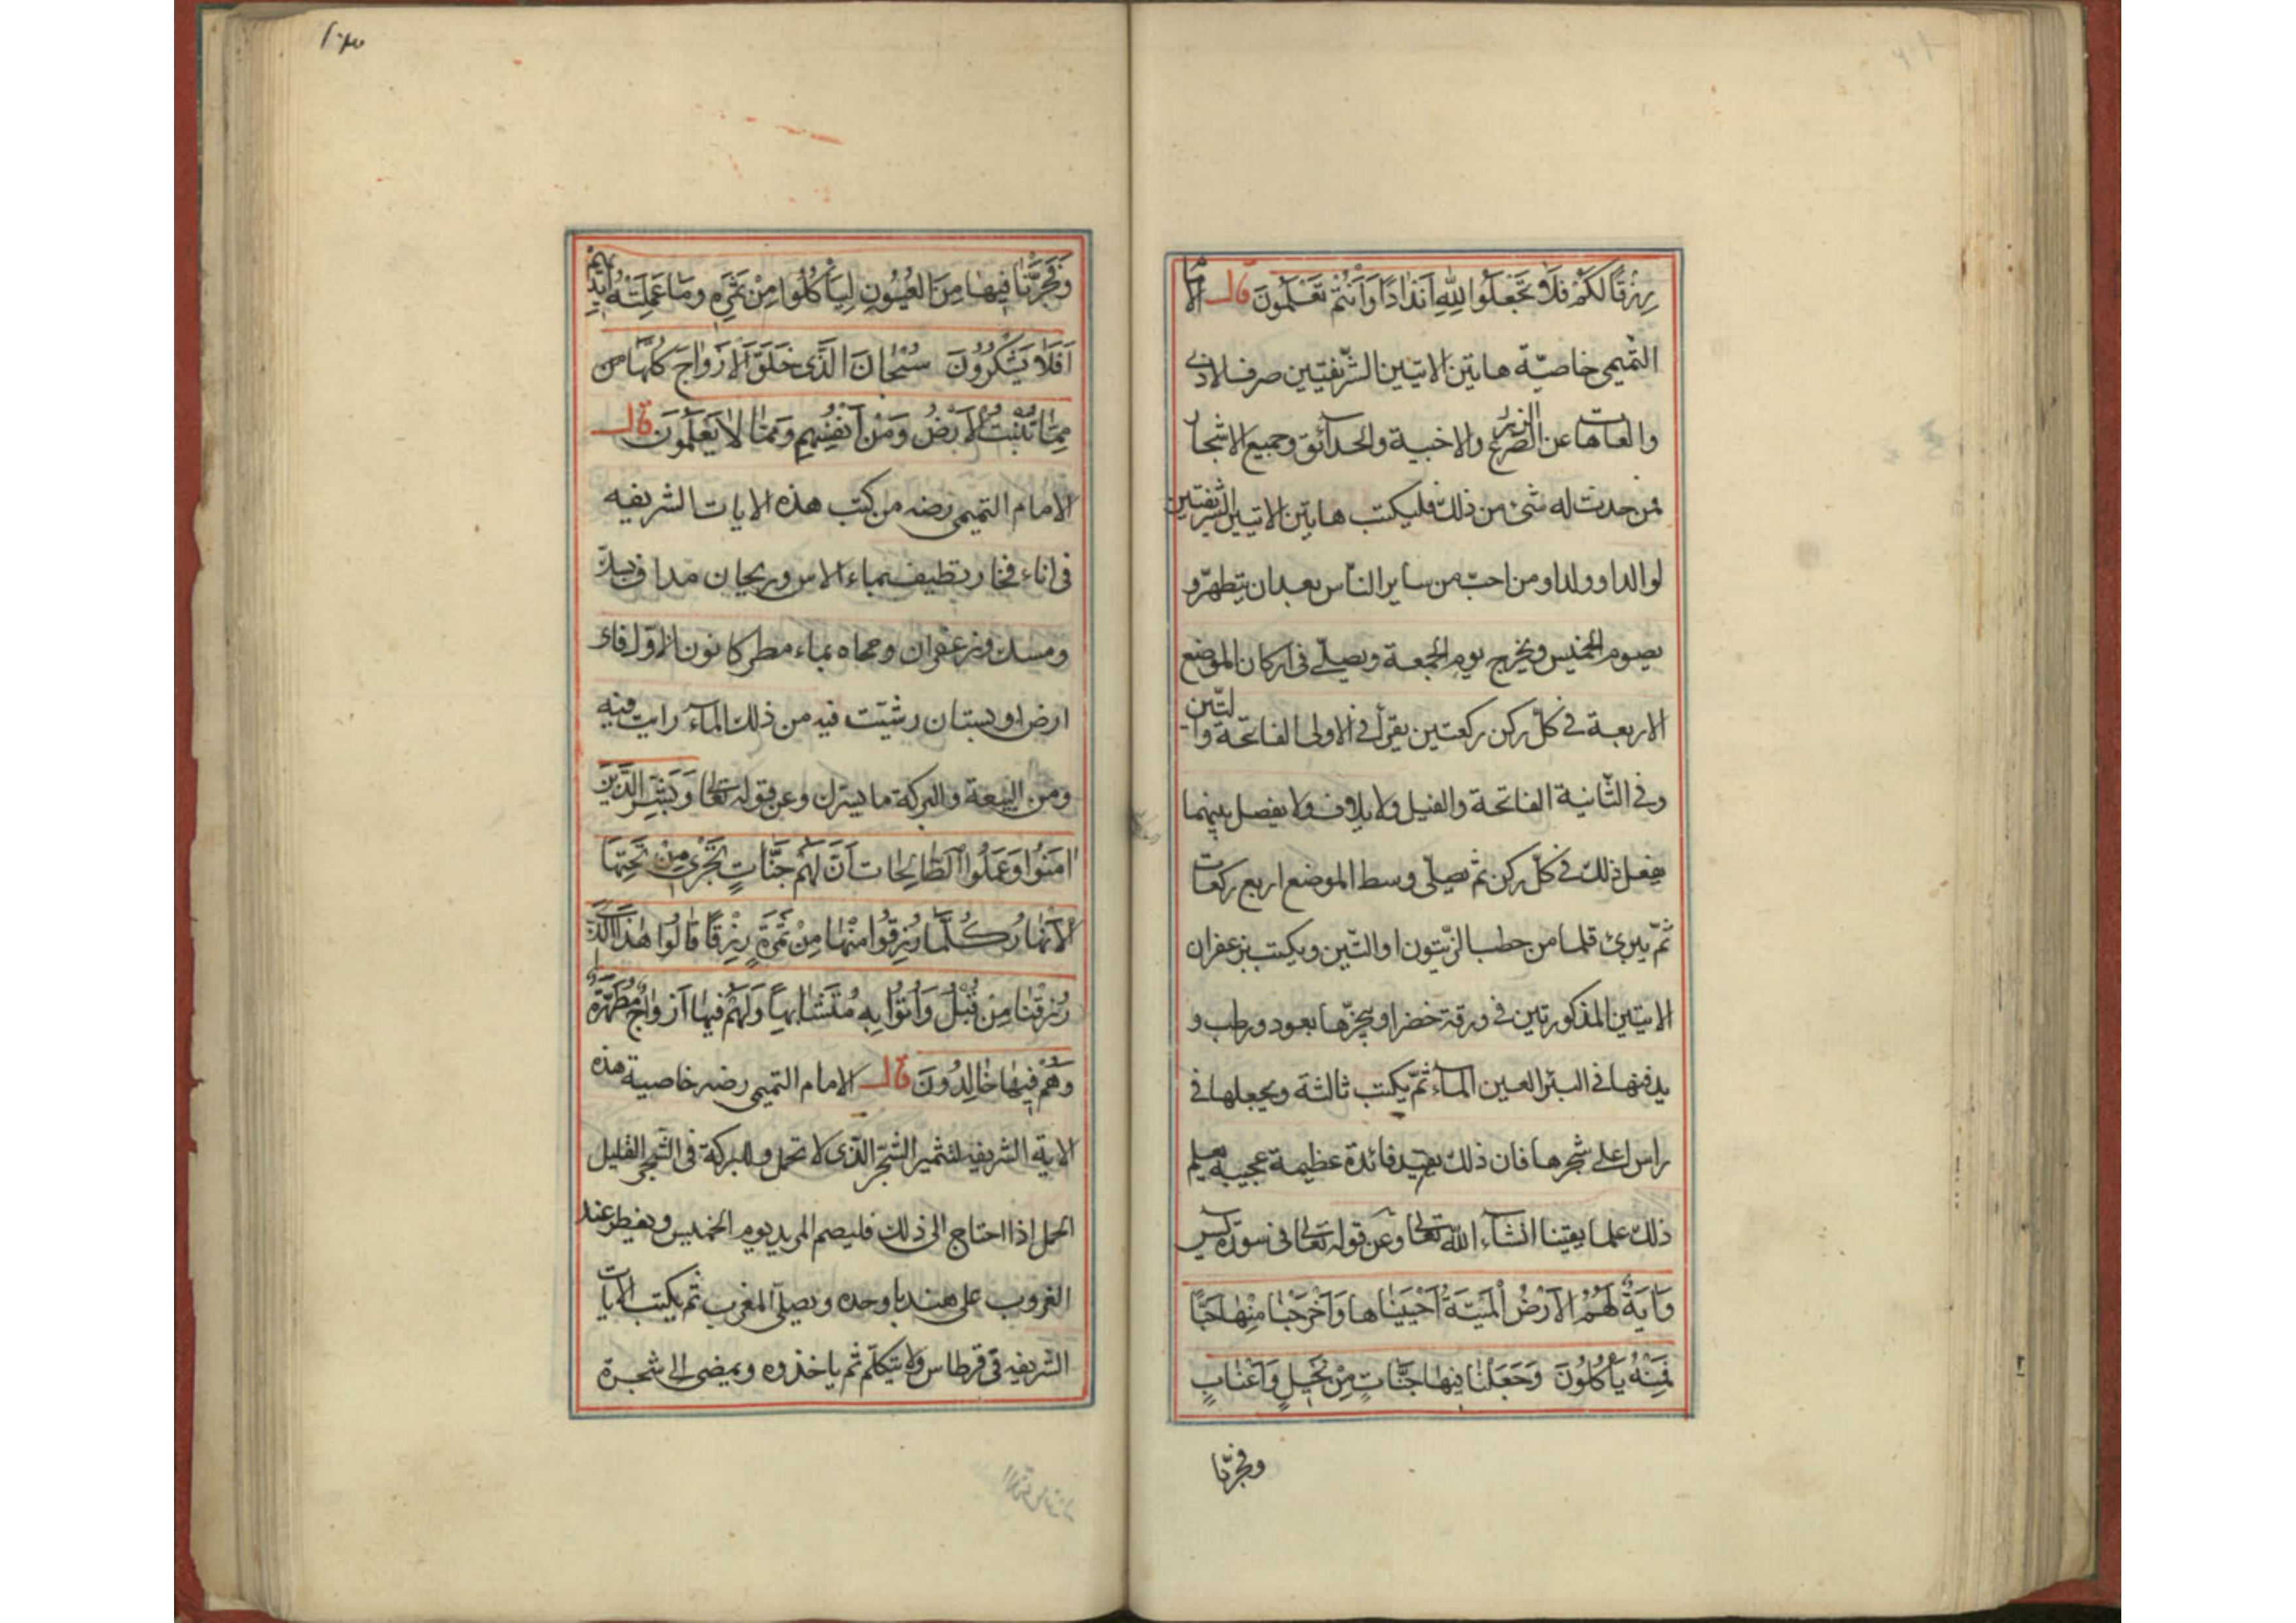 رِزْقًا لَكُمْ فَلَا تَجْعَلُوا لِلَّهِ اَنْدَادًا وَاَنْتُمْ تَعْلَمُونَ قال الامام
التميمى خاصيّة هاتين الايتين الشّريفتين صرف الاذى
والعاهات عن الزرع والاخبية والحدائق وجميع الاشجار
فمن حدث له شئ من ذلك فليكتب هاتين الايتين الشريفتين
لوالد او ولد او من احبّ من ساير النّاس بعد ان يتطهّر و
يصوم الخميس ويخرج يوم الجمعة ويصلّى فى اركان الموضع
الاربعة فى كلّ ركن ركعتين يقرأ فى الاولى الفاتحة والتّين
وفى الثّانية الفاتحة والفيل ولايلاف ولا يفصل بينهما
يفعل ذلك فى كلّ ركن ثم يصلّى وسط الموضع اربع ركعات
ثمّ يبرئ قلما من حطب الزّيتون او التّين ويكتب بزعفران
الايتين المذكورتين فى ورقة خضرا ويبخّرها بعود رطب و
يدفنها فى البئر العين الماء ثمّ يكتب ثالثة ويجعلها فى
راس اعلى شجرها فان ذلك يفيد فائدة عظيمة عجيبة يعلم
ذلك علما يقينا انشاء الله تعالى وعن قوله تعالى فى سورة يس
وَاٰيَةٌ لَهُمُ الْاَرْضُ الْمَيْتَةُ اَحْيَيْنَاهَا وَاَخْرَجْنَا مِنْهَا حَبًّا
فَمِنْهُ يَأْكُلُونَ وَجَعَلْنَا فِيهَا جَنَّاتٍ مِنْ نَخِيلٍ وَاَعْنَابٍ
وفجرّنا
١٠٣
وَفَجَّرْنَا فِيهَا مِنَ الْعُيُونِ لِيَأْكُلُوا مِنْ ثَمَرِهِ وَمَا عَمِلَتْهُ اَيْدِيهِمْ
اَفَلَا يَشْكُرُونَ سُبْحَانَ الَّذِى خَلَقَ الْاَزْوَاجَ كُلَّهَا من
مِمَّا تُنْبِتُ الْاَرْضُ وَمِنْ اَنْفُسِهِمْ وَمِمَّا لَا يَعْلَمُونَ قال
الامام التميمى رضه من كتب هذه الايات الشريفه
فى اناء فخار نظيف بماء الاس وريحان مداف
ومسك وزعفران ومحاه بماء مطر كانون الاوّل فاى
ارض او بستان رشيّت فيه من ذلك الماء رايت فيه
ومن والبركة ما يسرك وعن قوله تعالى وَبَشِّرِ الَّذِينَ
اٰمَنُوا وَعَمِلُوا الصَّالِحَات اَنَّ لَهُمْ جَنَّاتٍ تَجْرِى مِنْ تَحْتِهَا
الْاَنْهَارُ كُلَّمَا رُزِقُوا مِنْهَا مِنْ ثَمَرَةٍ رِزْقًا قَالُوا هٰذَا الَّذِى
رُزِقْنَا مِنْ قَبْلُ وَاُتُوا بِهِ مُتَشَابِهًا وَلَهُمْ فِيهَا اَزْوَاجٌ مُطَهَّرَةٌ
وَهُمْ فِيهَا خَالِدُونَ قال الامام التميمى رضه خاصية هذه
الاية الشريفه لتثمير الشّجر الّذى لا تحمل والبركة فى الثّمر القليل
الحمل اذا احتاج الى ذلك فليصم المريد يوم الخميس ويفطر عند
الغروب على هندبا وحده ويصلّى المغرب ثم يكتب الايات
الشريفه فى قرطاس ولا يتكلّم ثم ياخذوه ويمضى الى شجرة